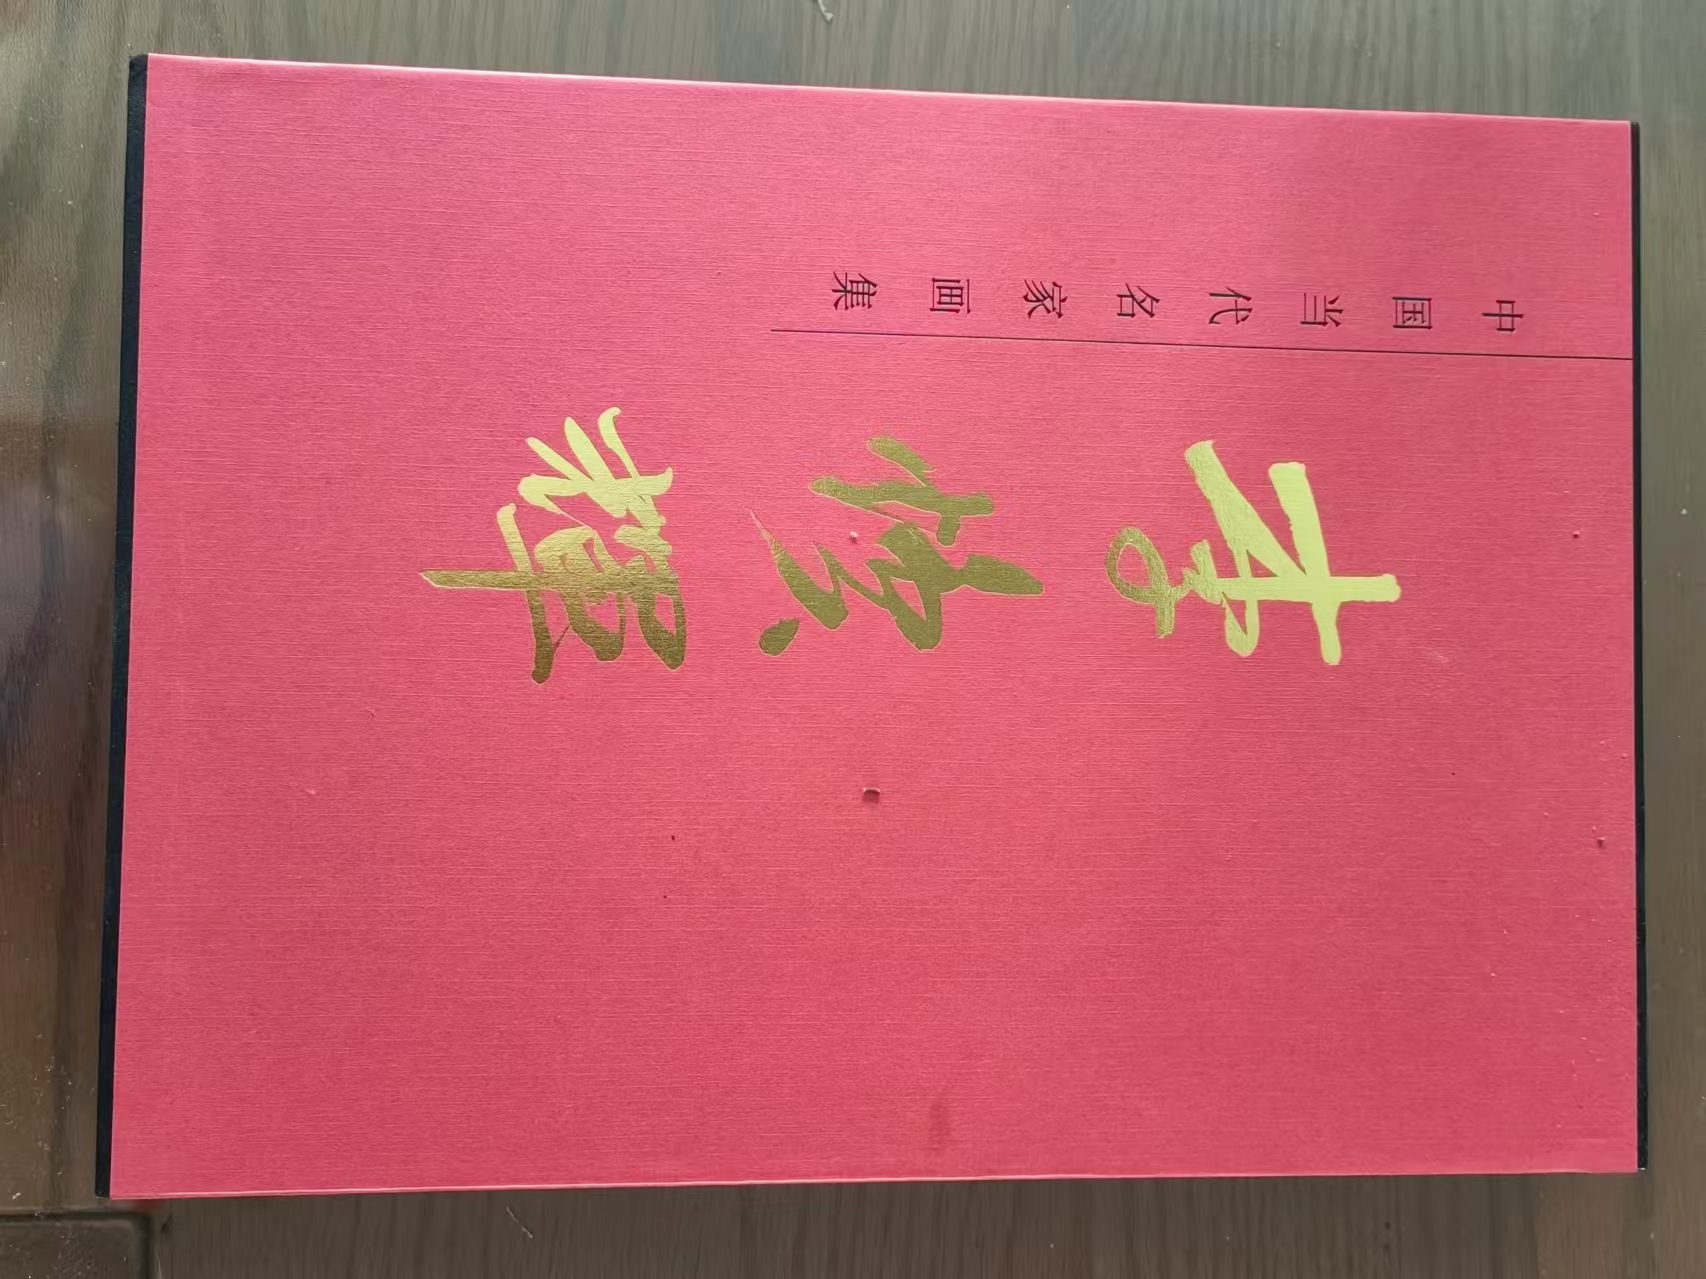 中国当代名家画集
李
輝